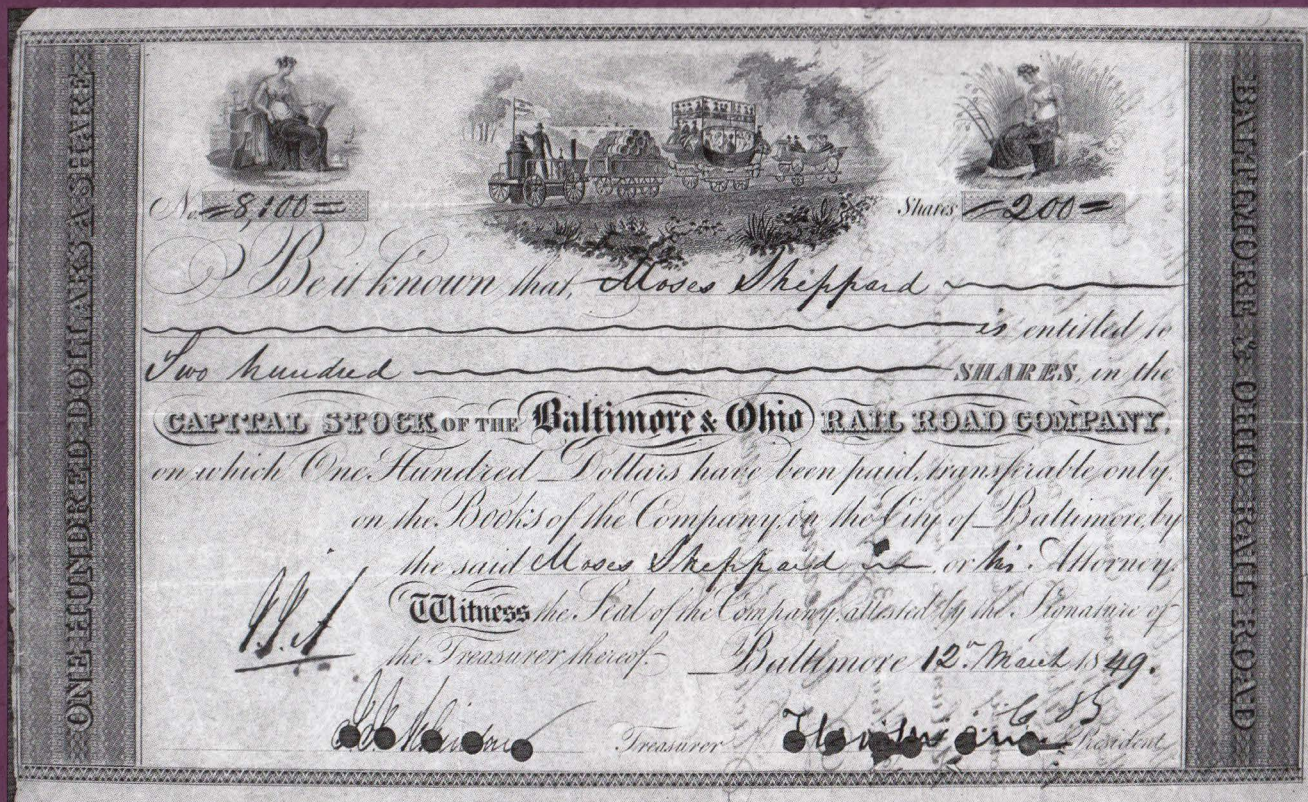 ONE HUNDRED DOLLARS A SHARE
No. 8,100
Shares 200
Be it known that, Moses Sheppard
is entitled to
Two hundred SHARES, in the
CAPITAL STOCK OF THE Baltimore & Ohio RAIL ROAD COMPANY,
on which One Hundred Dollars have been paid, transferable only
on the Books of the Company in the City of Baltimore, by
the said Moses Sheppard or his Attorney.
Witness the Seal of the Company, attested by the Signature of
the Treasurer thereof. Baltimore 12th March 1849.
Treasurer President
BALTIMORE & OHIO RAIL ROAD